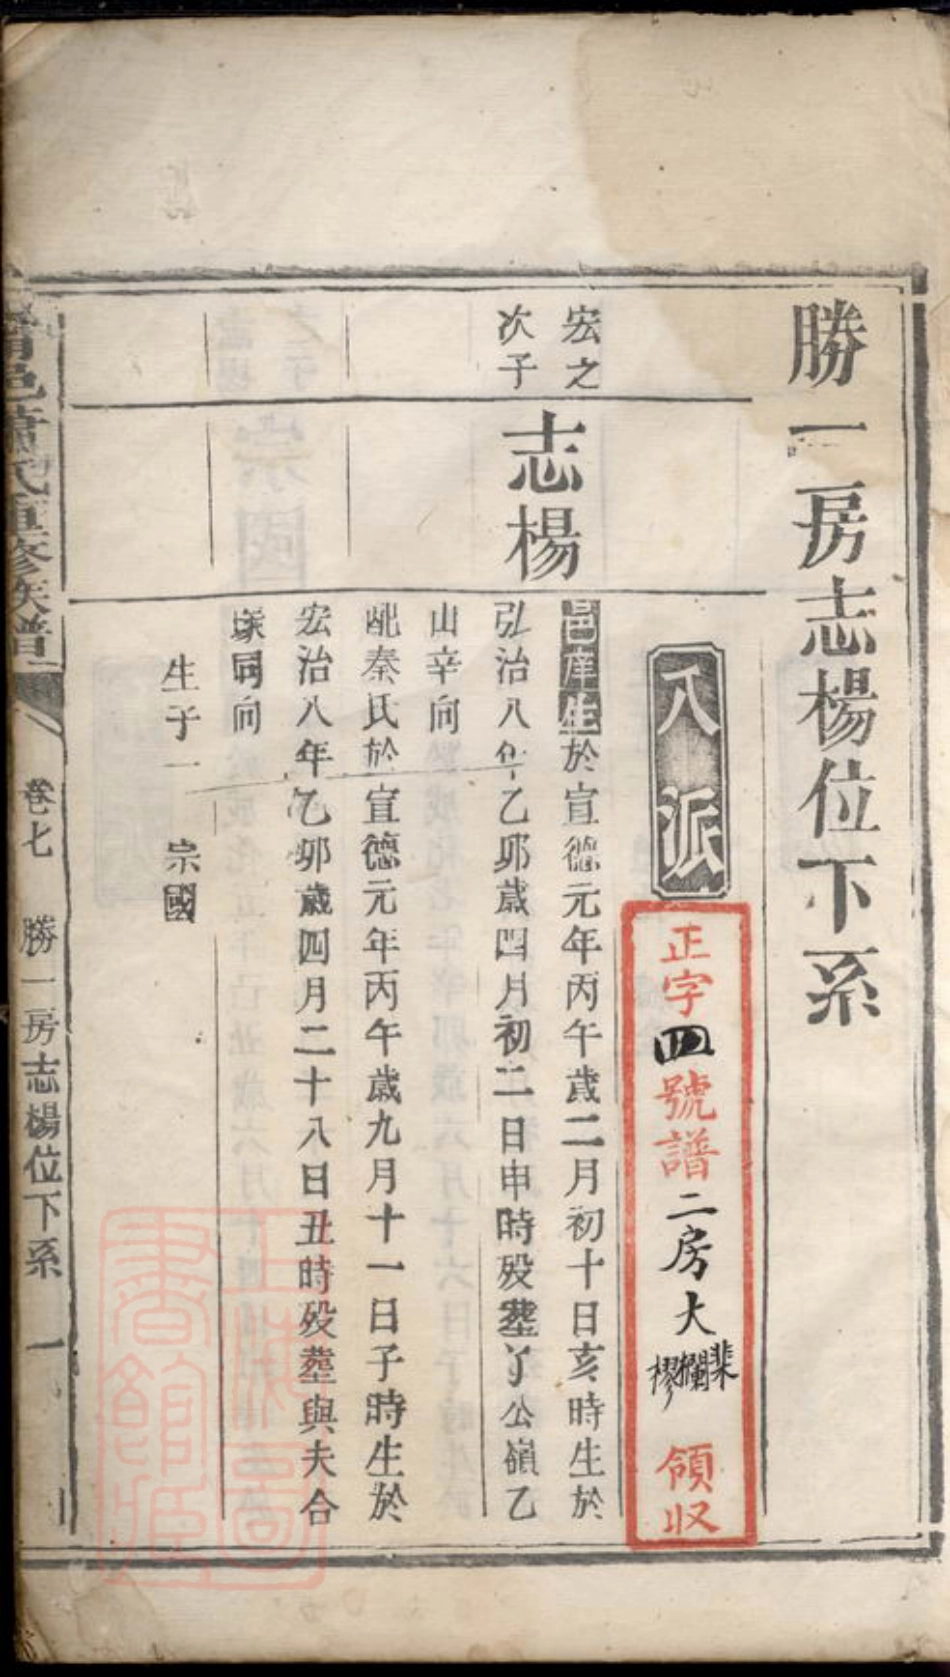 勝一房志楊位下系
八派
正字四號譜二房大
領収
宏之
次子
志楊
邑庠生於宣德元年丙午歲二月初十日亥時生於
弘治八年乙卯歲四月初二日申時殁塟丫公嶺乙
山辛向
配秦氏於宣德元年丙午歲九月十一日子時生於
宏治八年乙卯歲四月二十八日丑時殁塟與夫合
塚同向
生子一 宗國
邑蕭氏重修族譜
卷七 勝一房志楊位下系 一
上海圖
書館藏